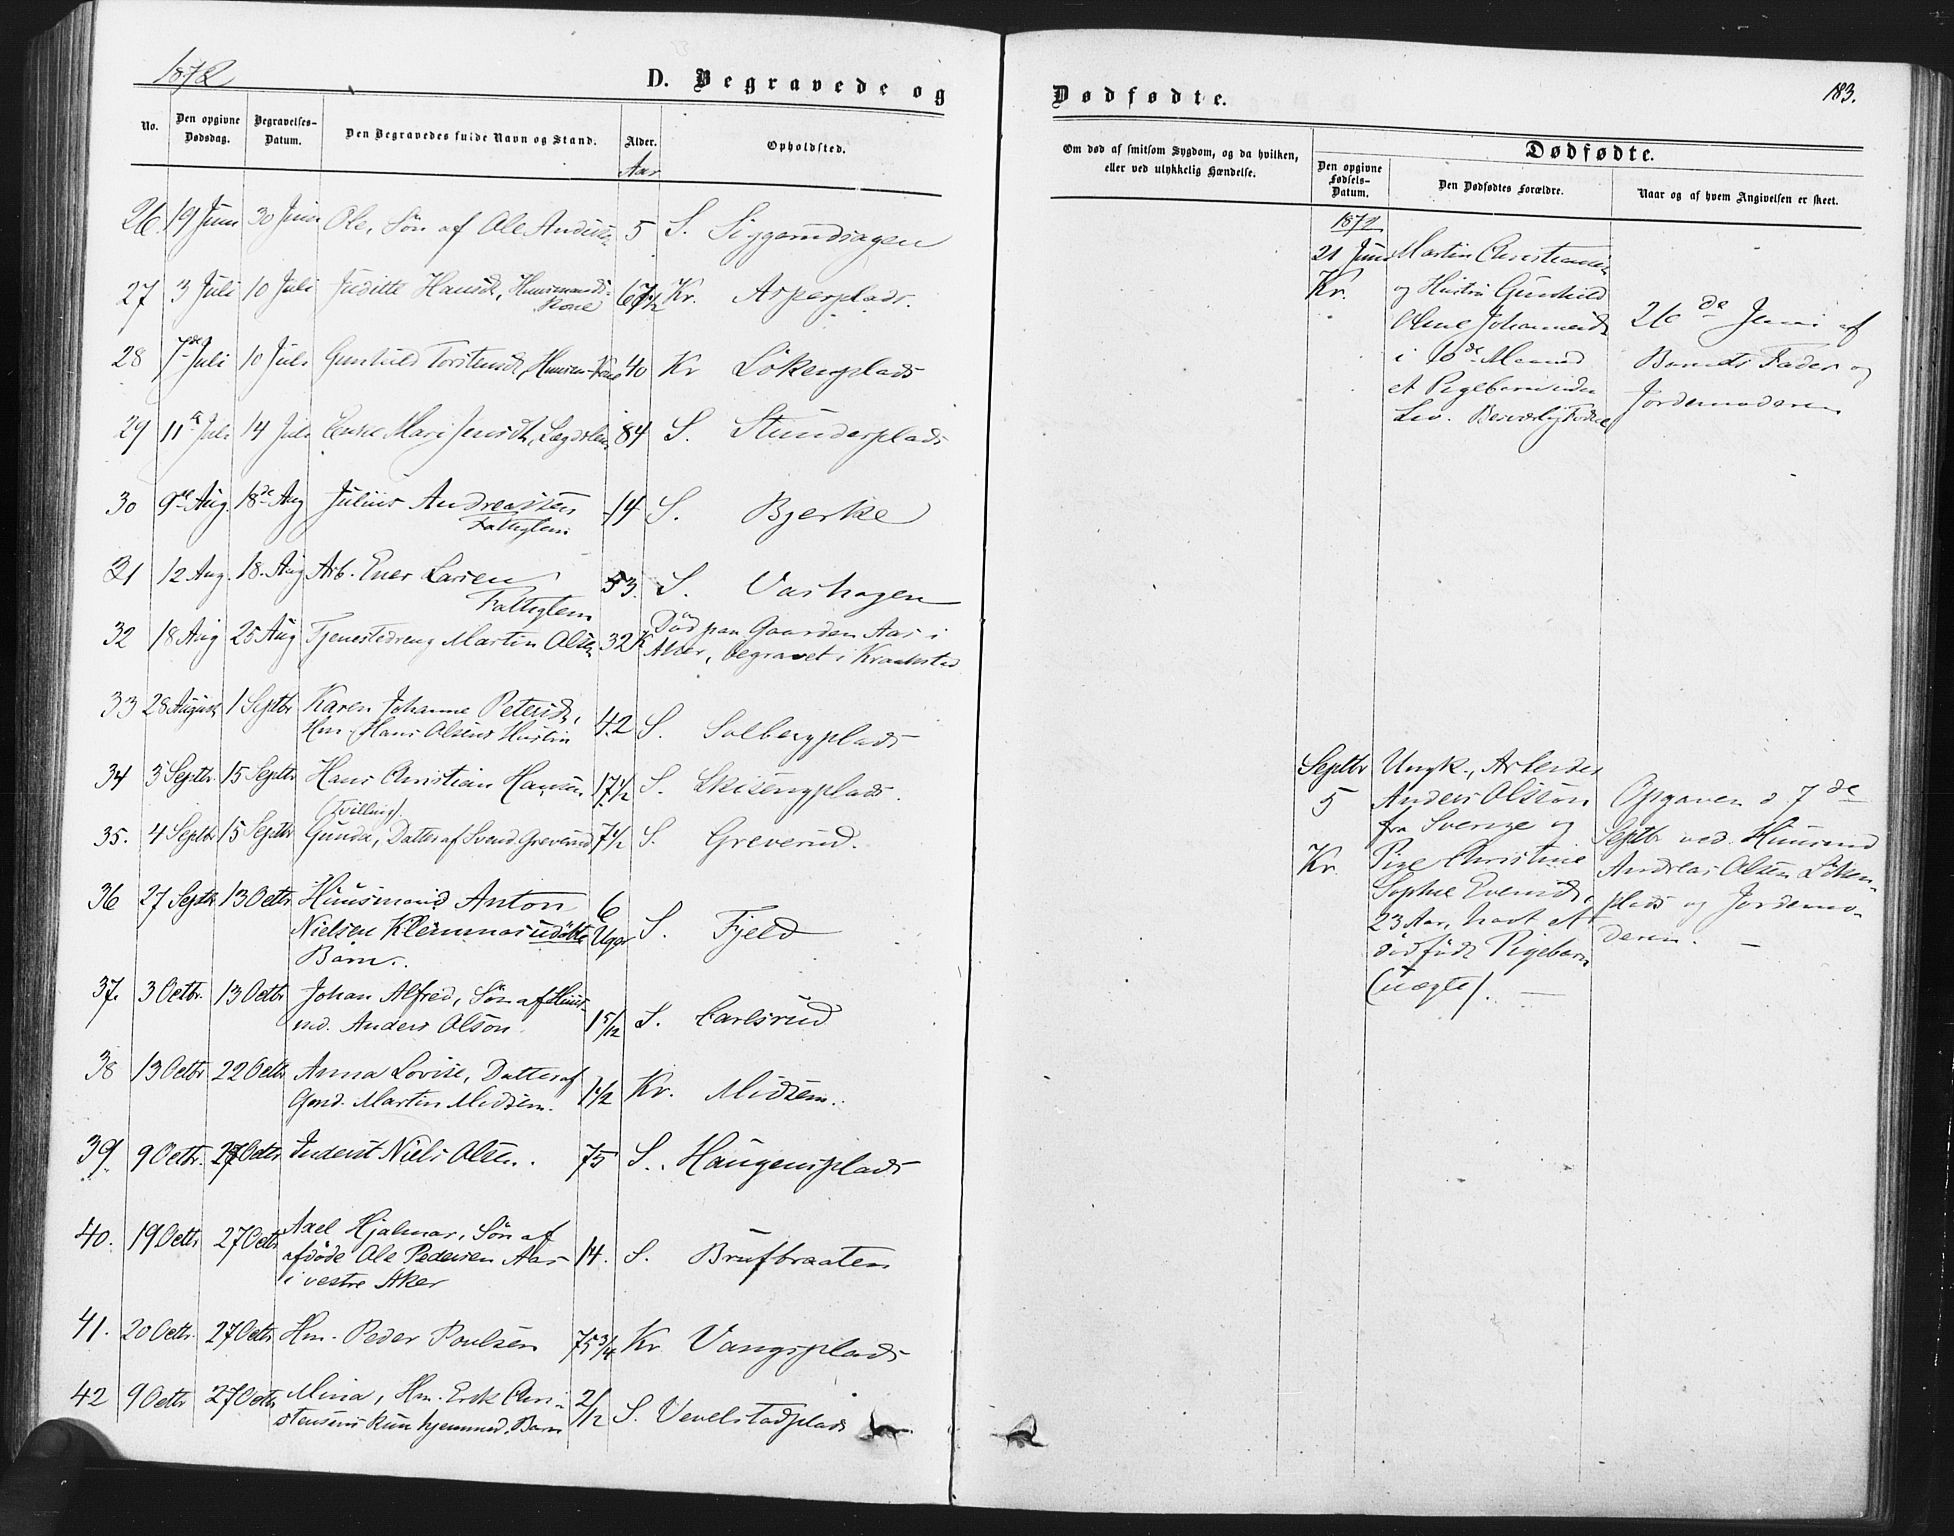 1872
D. Begravede og
No.
Den opgivne Dødsdag.
Begravelses-Datum.
Den Begravedes fulde Navn og Stand.
Alder.
Aar
Opholdsted.
26. 19 Juni 30 Juni Ole, Søn af Ole Andersen 5 S.
27 3 Juli 10 Juli Juditte Hansd., Huusmands- Kr. Asperplads.
Kone
28 7de Juli 10 Juli Gunhild Torstensd., 40 Kr Lökenplads
29 11te Juli 14 Juli Mari Jensdt., Lægdslem 84 S. Stunderplads
30 9de Aug. 18de Aug Julius Andreassen 14 S. Bjerke
Fattiglem
31 12 Aug. 18. Aug Arb. Ener Larsen 53. S. Vashagen
Fattiglem
32 18 Aug 25 Aug Tjenestedreng Martin Olsen 32 K Død paa Gaarden Aas i
Aker, begravet i Kraakstad
33 28 August 1 Septbr Karen Johanne Petersd.,
Hm. Hans Olsens Hustru 42 S. Solbergplads
34 3 Septbr. 15 Septbr Hans Christian Hansen 17 1/2 S. Skisengplads.
(Tvilling)
35. 4 Septbr 15 Septbr Gunda, Datter af Svend Greverud 7 1/2 S. Greverud.
36 27 Septbr 13 Octbr Huusmand Anton 6
Nielsen Klemmas udøbte Uger S. Fjeld
Barn.
37. 3 Octbr. 13 Octbr Johan Alfred, Søn af Huus-
md. Anders Olson. 1 5/12 S. Carlsrud
38 13 Octbr 22 Octbr Anna Lovise, Datter af
Gmd. Martin Midsem. 1 1/2 Kr. Midsem.
39. 9 Octbr. 27 Octbr Inderst Niels Olsen. 75 S. Haugensplads
40. 19 Octbr 27 Octbr Axel Hjalmar, Søn af
afdøde Ole Pedersen Aas 14. S. Brufbraaten
i vestre Aker
41. 20 Octbr. 27 Octbr. Hm. Peder Poulsen 75 3/4 Kr Vangsplads
42 9 Octbr 27 Octbr Mina, Hm. Erik Chri- 2/12
stensens kun hjemmed. Barn S. Vevelstadplads
Dødfødte.
183.
Om død af smitsom Sygdom, og da hvilken, eller ved ulykkelig Hændelse.
Dødfødte.
Den opgivne Fødsels-Datum.
Den Dødfødtes Forældre.
Naar og af hvem Angivelsen er skeet.
1872
21 Juni Martin Christiansen
Kr. og Hustru Gunhild
Olene Johannesd. 26de Juni af
i 10de Maaned Barnets Fader og
et Pigebarn uden Jordemoderen
Liv.
Septbr Ungk., Arbeider
5 Anders Olsson Opgaven d 7de
fra Sverige og Septbr ved Huusmd
Kr. Pige Christine Andreas Olsen Löken-
Sophie Evensd., plads og Jordemo-
23 Aar, havt et deren.
dødfødt Pigebarn
(uægte).